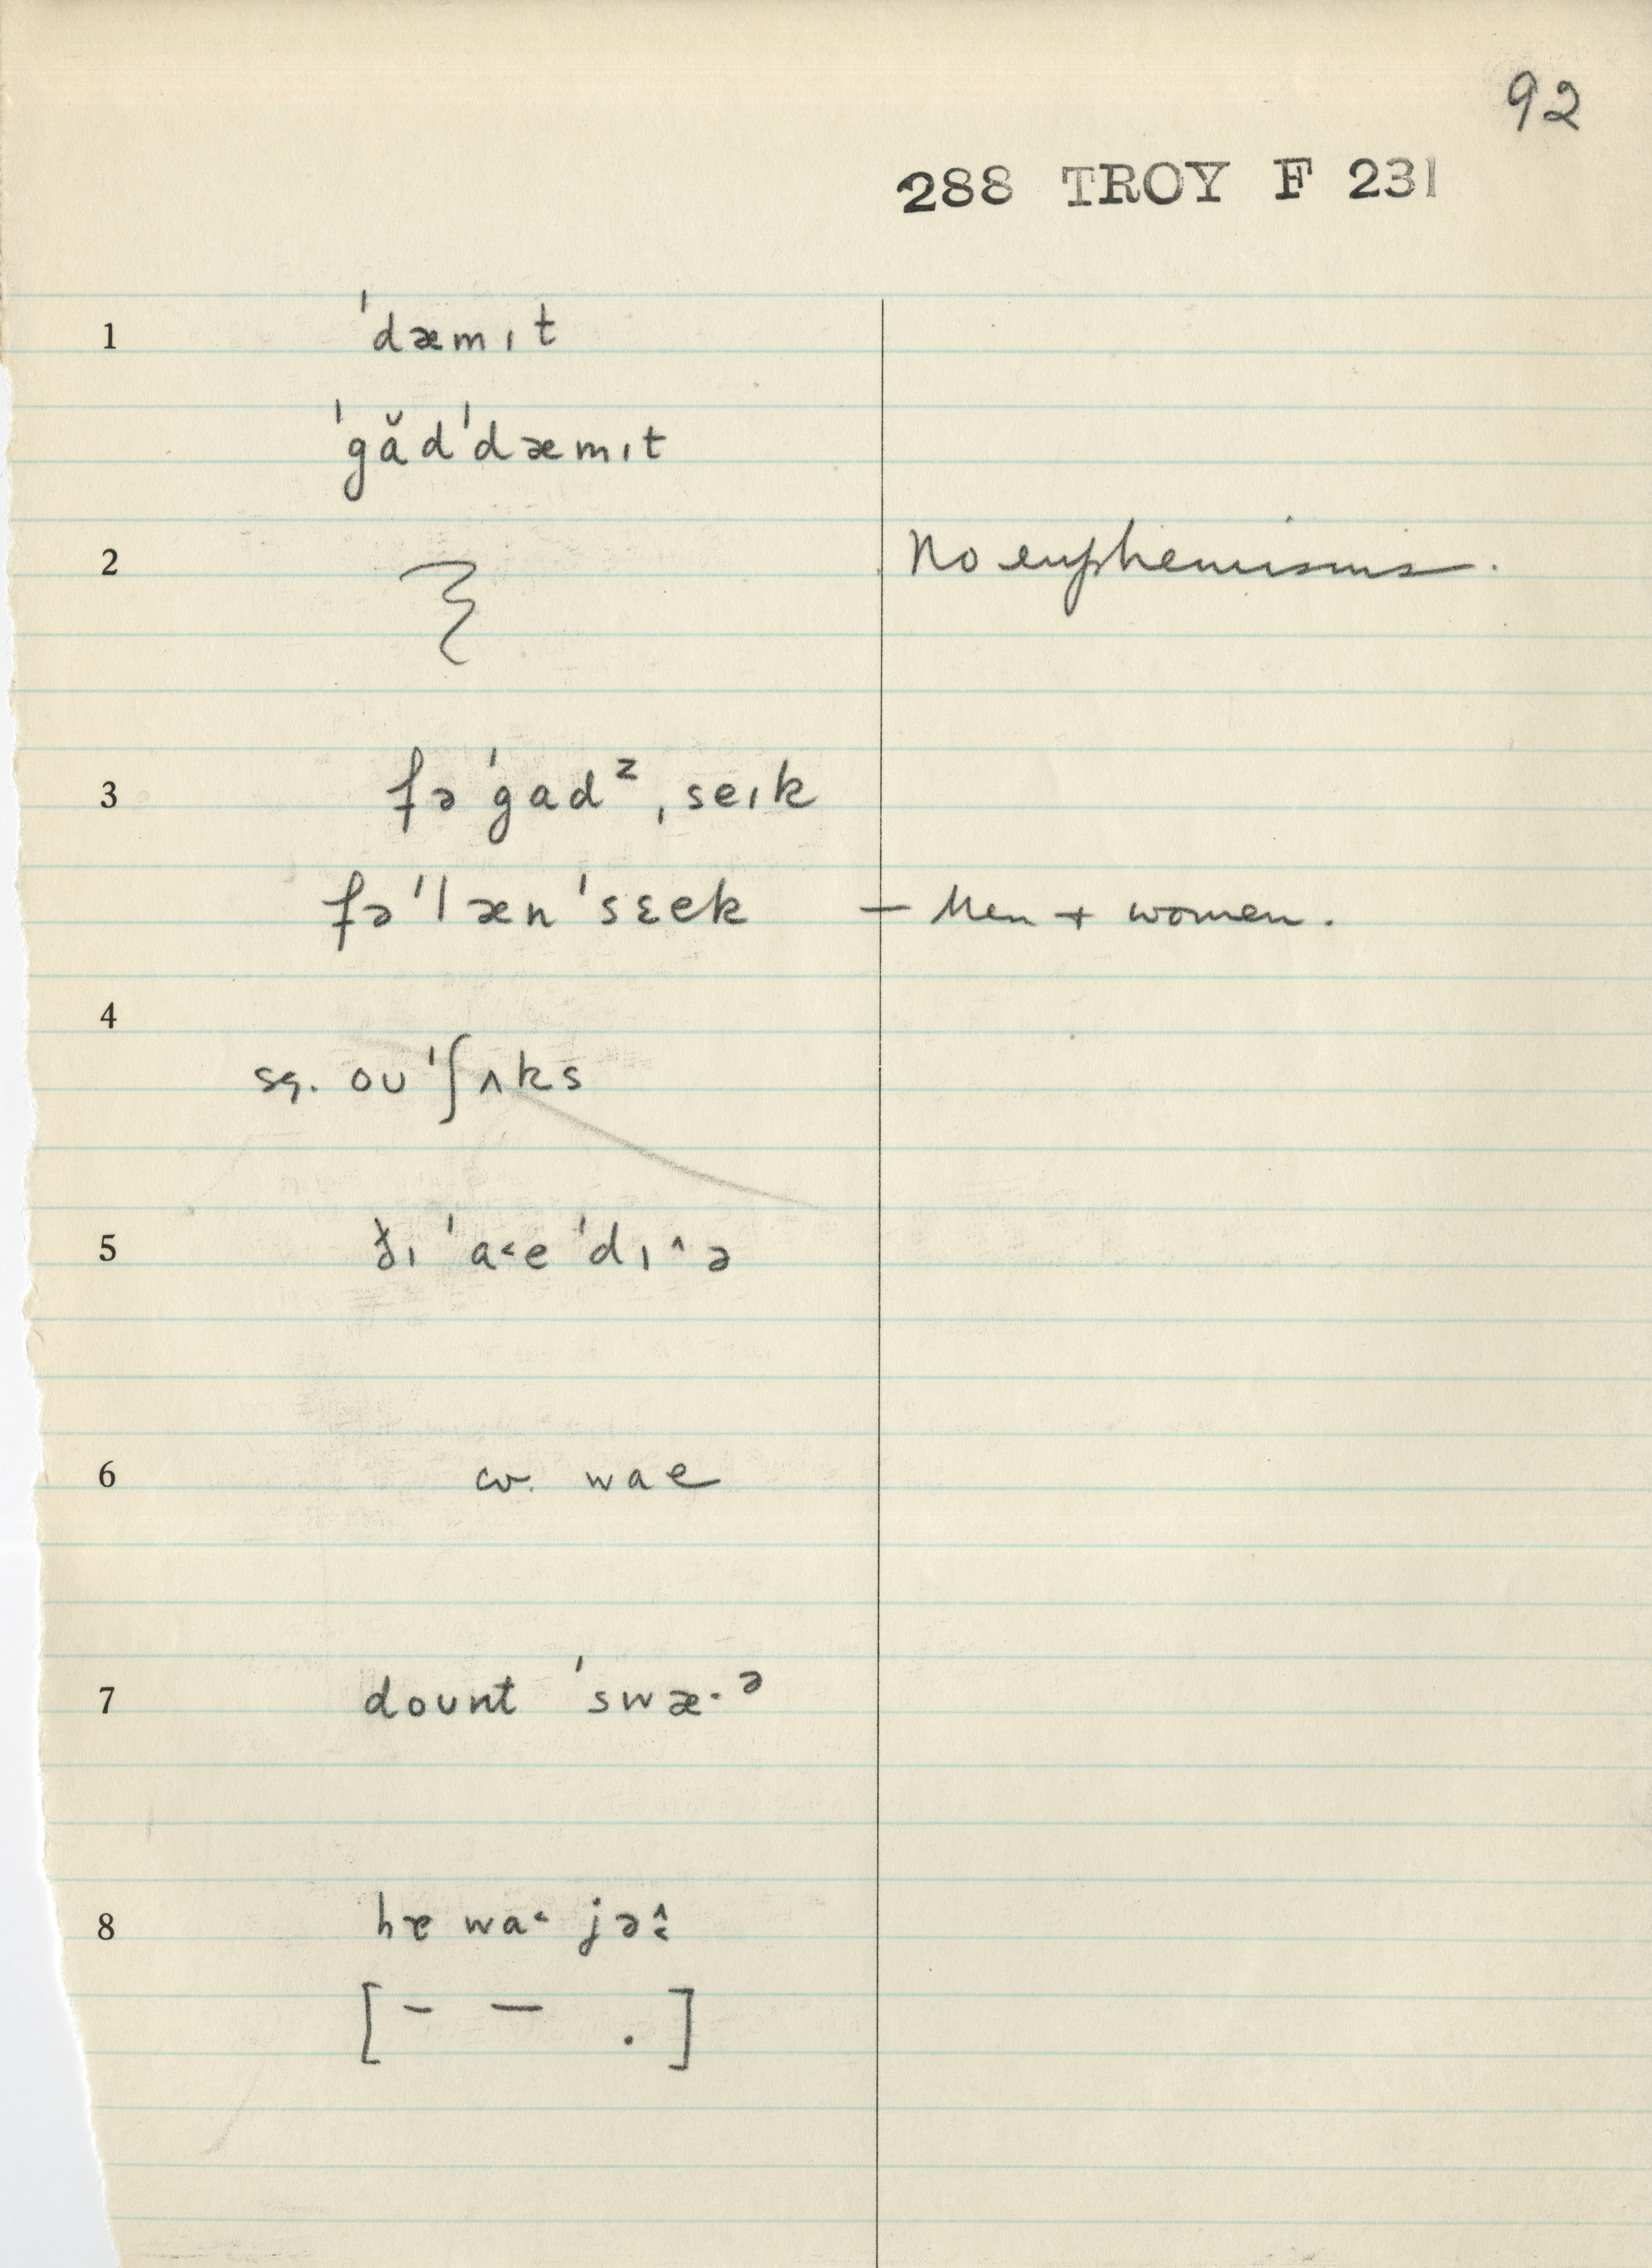 92
288 TROY F 231
1 ˈdæmıt
ˈgɑ̆dˈdæmıt
2 No euphemisms.
3 fəˈgadᶻˌseık
fəˈlænˈsɛek — Men + women.
4
sg. oʊˈʃʌks
5 ðı ˈa˂eˈdı^ə
6 cv. wae
7 doʊnt ˈswæ·ᵊ
8 wa˂ jə
[– — .]